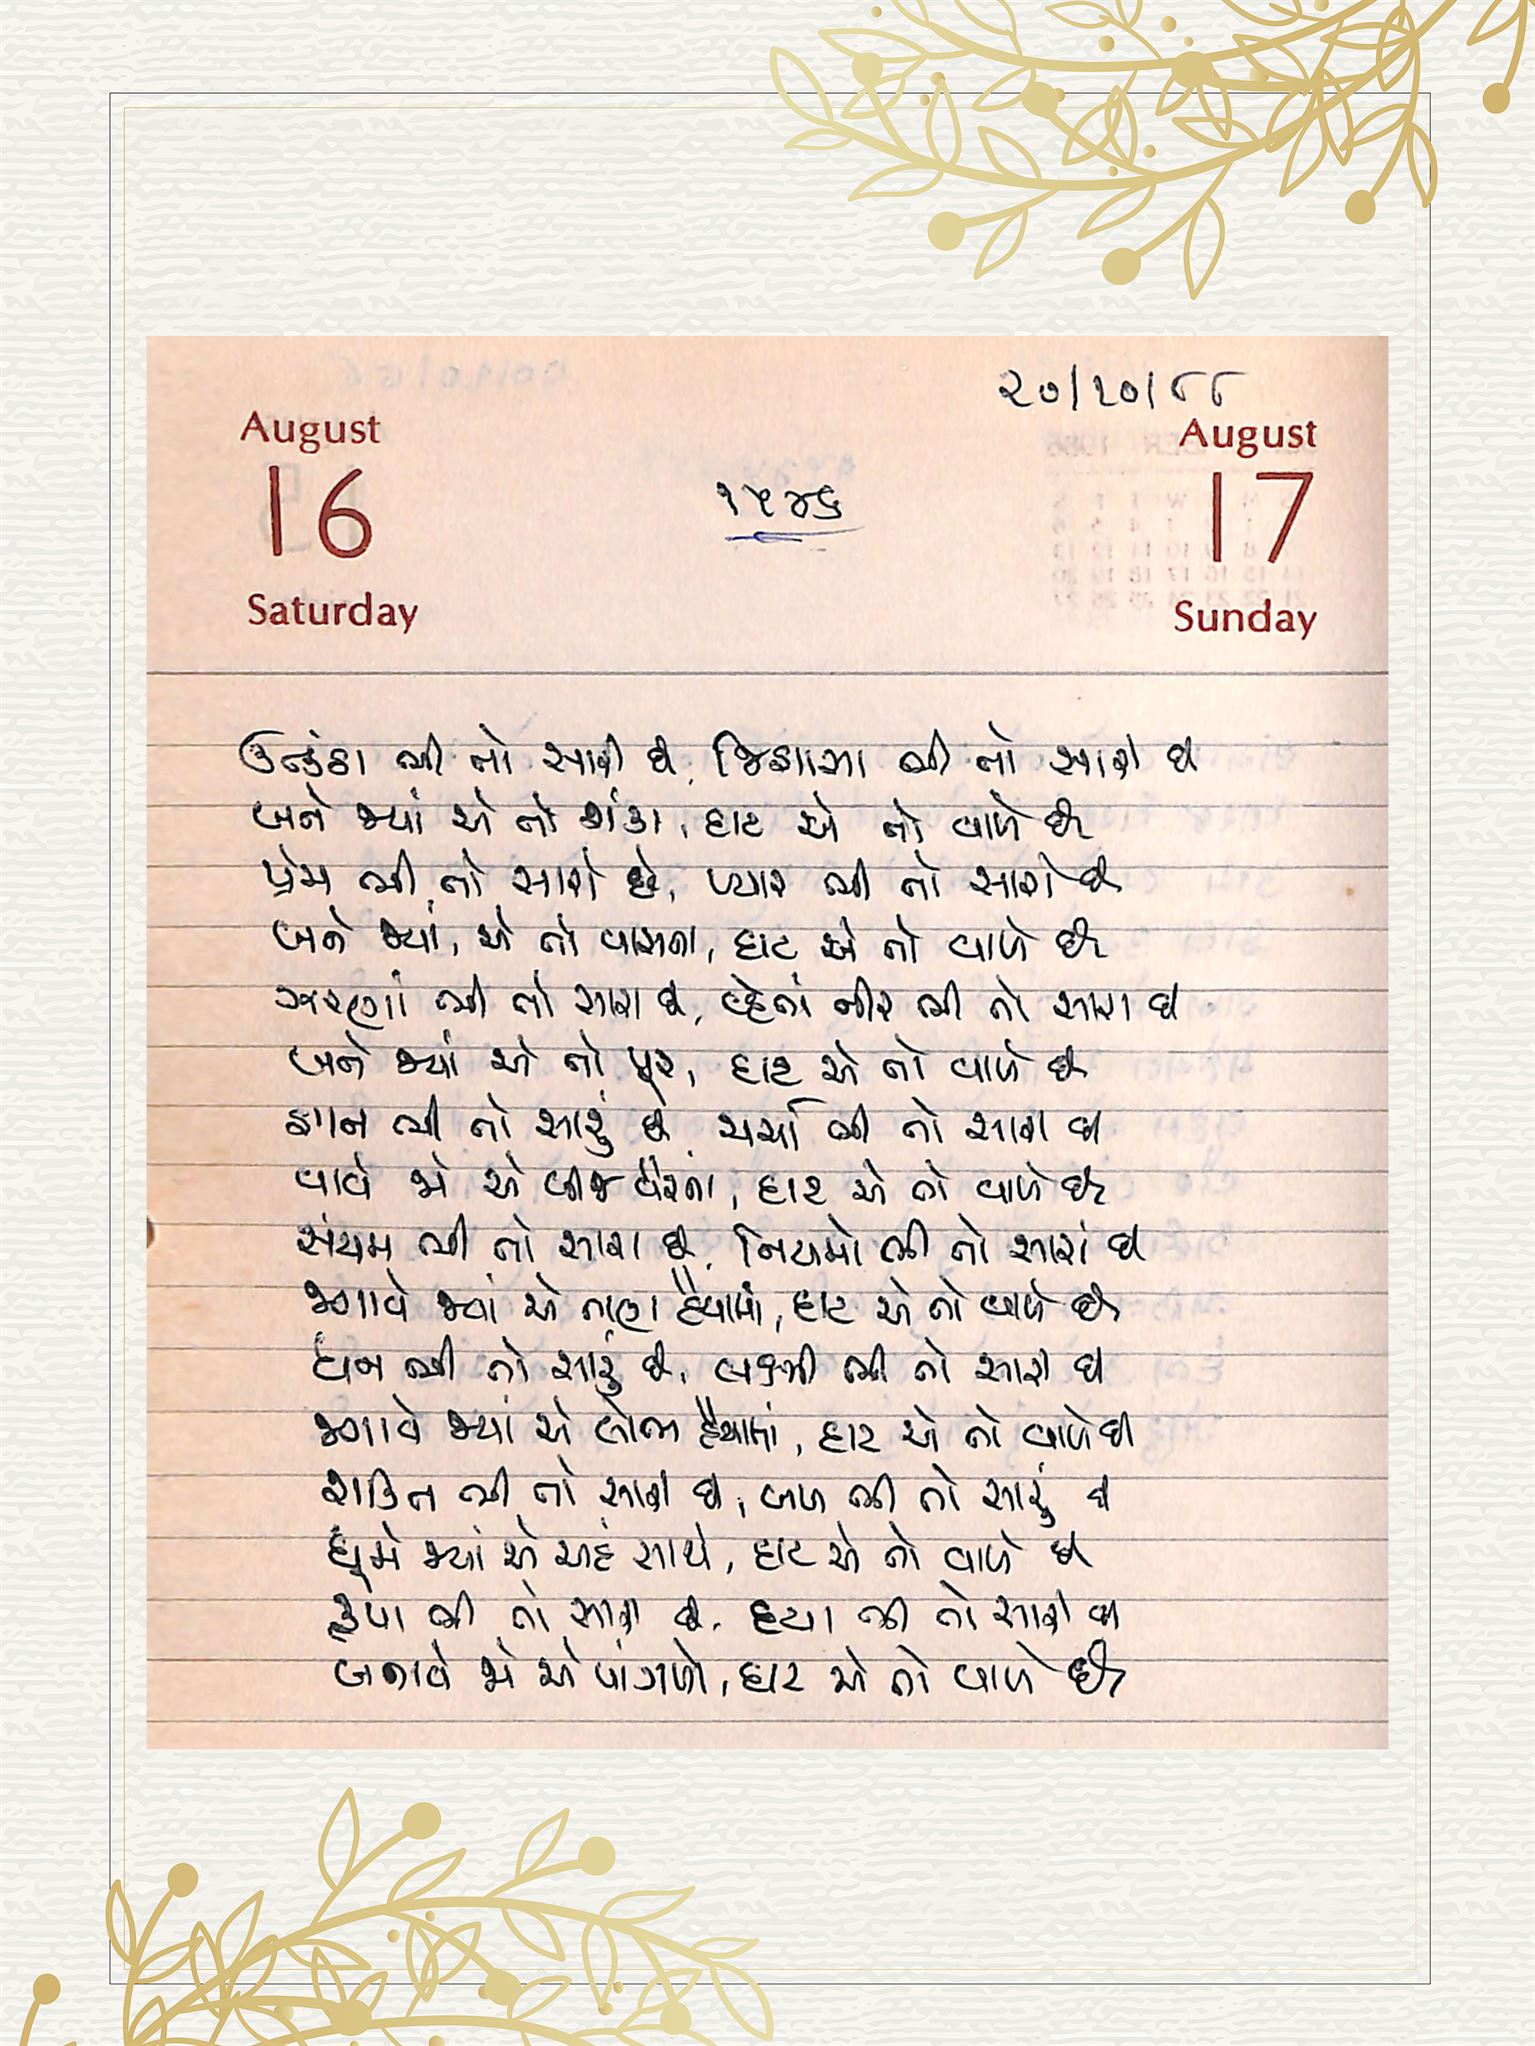 ૨૦/૧૦/૮૮
August
16
Saturday
૧૫૪૬
August
17
Sunday
ઉત્કંઠા ભી તો સારી છે, જિજ્ઞાસા ભી તો સારી છે
બને જ્યાં એ તો શંકા, દાટ એ તો વાળે છે
પ્રેમ ભી તો સારો છે, પ્યાર ભી તો સારો છે
બને જ્યાં, એ તો વાસના, દાટ એ તો વાળે છે
ઝરણાં ભી તો સારા છે, વ્હેતાં નીર ભી તો સારા છે
બને જ્યાં એ તો પૂર, દાટ એ તો વાળે છે
જ્ઞાન ભી તો સારું છે ચર્ચા ભી તો સારી છે
વાવે જો એ બીજ વૈરનાં, દાટ એ તો વાળે છે
સંયમ ભી તો સારા છે, નિયમો ભી તો સારાં છે
જગાવે જ્યાં એ તાણ હૈયામાં, દાટ એ તો વાળે છે
ધન ભી તો સારું છે, લક્ષ્મી ભી તો સારી છે
જગાવે જ્યાં એ લોભ હૈયામાં, દાટ એ તો વાળે છે
શક્તિ ભી તો સારી છે, બળ ભી તો સારું છે
ઘૂમે જ્યાં એ અહં સાથે, દાટ એ તો વાળે છે
કૃપા ભી તો સારી છે, દયા ભી તો સારી છે
બનાવે જો એ પાંગળો, દાટ એ તો વાળે છે